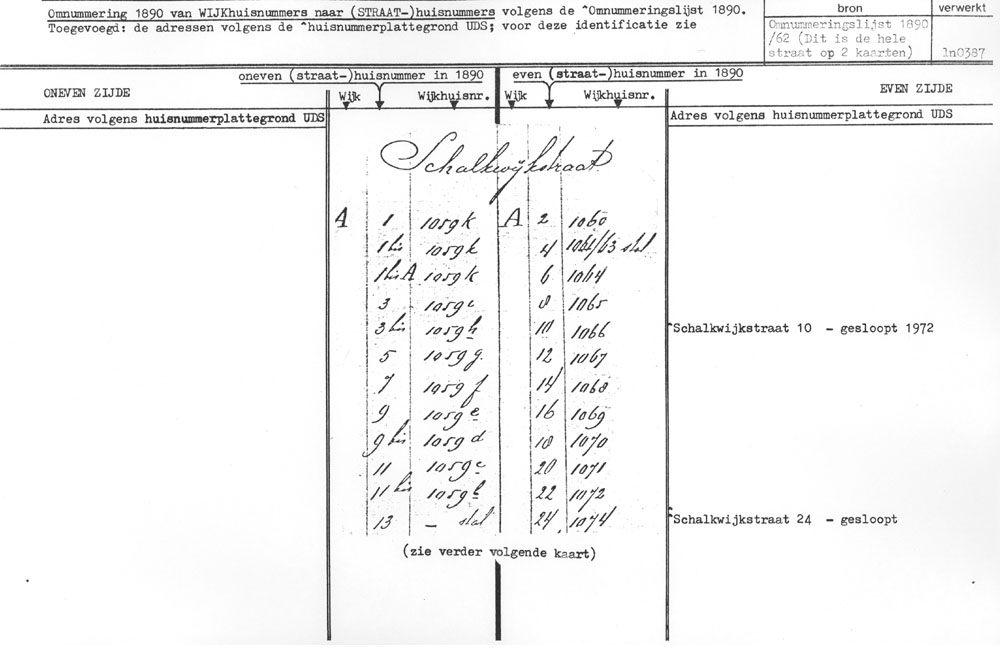 Omnummering 1890 van WIJKhuisnummers naar (STRAAT-)huisnummers volgens de ^Omnummeringslijst 1890.
Toegevoegd: de adressen volgens de ^huisnummerplattegrond UDS; voor deze identificatie zie
bron
Omnummeringslijst 1890
/62 (Dit is de hele
straat op 2 kaarten)
verwerkt
ln0387
oneven (straat-)huisnummer in 1890
even (straat-)huisnummer in 1890
ONEVEN ZIJDE
Wijk
Wijkhuisnr.
Wijk
Wijkhuisnr.
EVEN ZIJDE
Adres volgens huisnummerplattegrond UDS
Adres volgens huisnummerplattegrond UDS
Schalkwijkstraat
A 1 1059k A 2 1060
1 bis 1059k 4 /63 stal
1 bis A 1059k 6 1064
3 8 1065
3 bis 1059h 10 1066 ^Schalkwijkstraat 10 - gesloopt 1972
5 1059g. 12 1067
7 1059f 14 1068
9 1059e 16 1069
9 bis 1059d 18 1070
11 1059c 20 1071
11 bis 1059b 22 1072
13 – stal 24 1074 ^Schalkwijkstraat 24 - gesloopt
(zie verder volgende kaart)